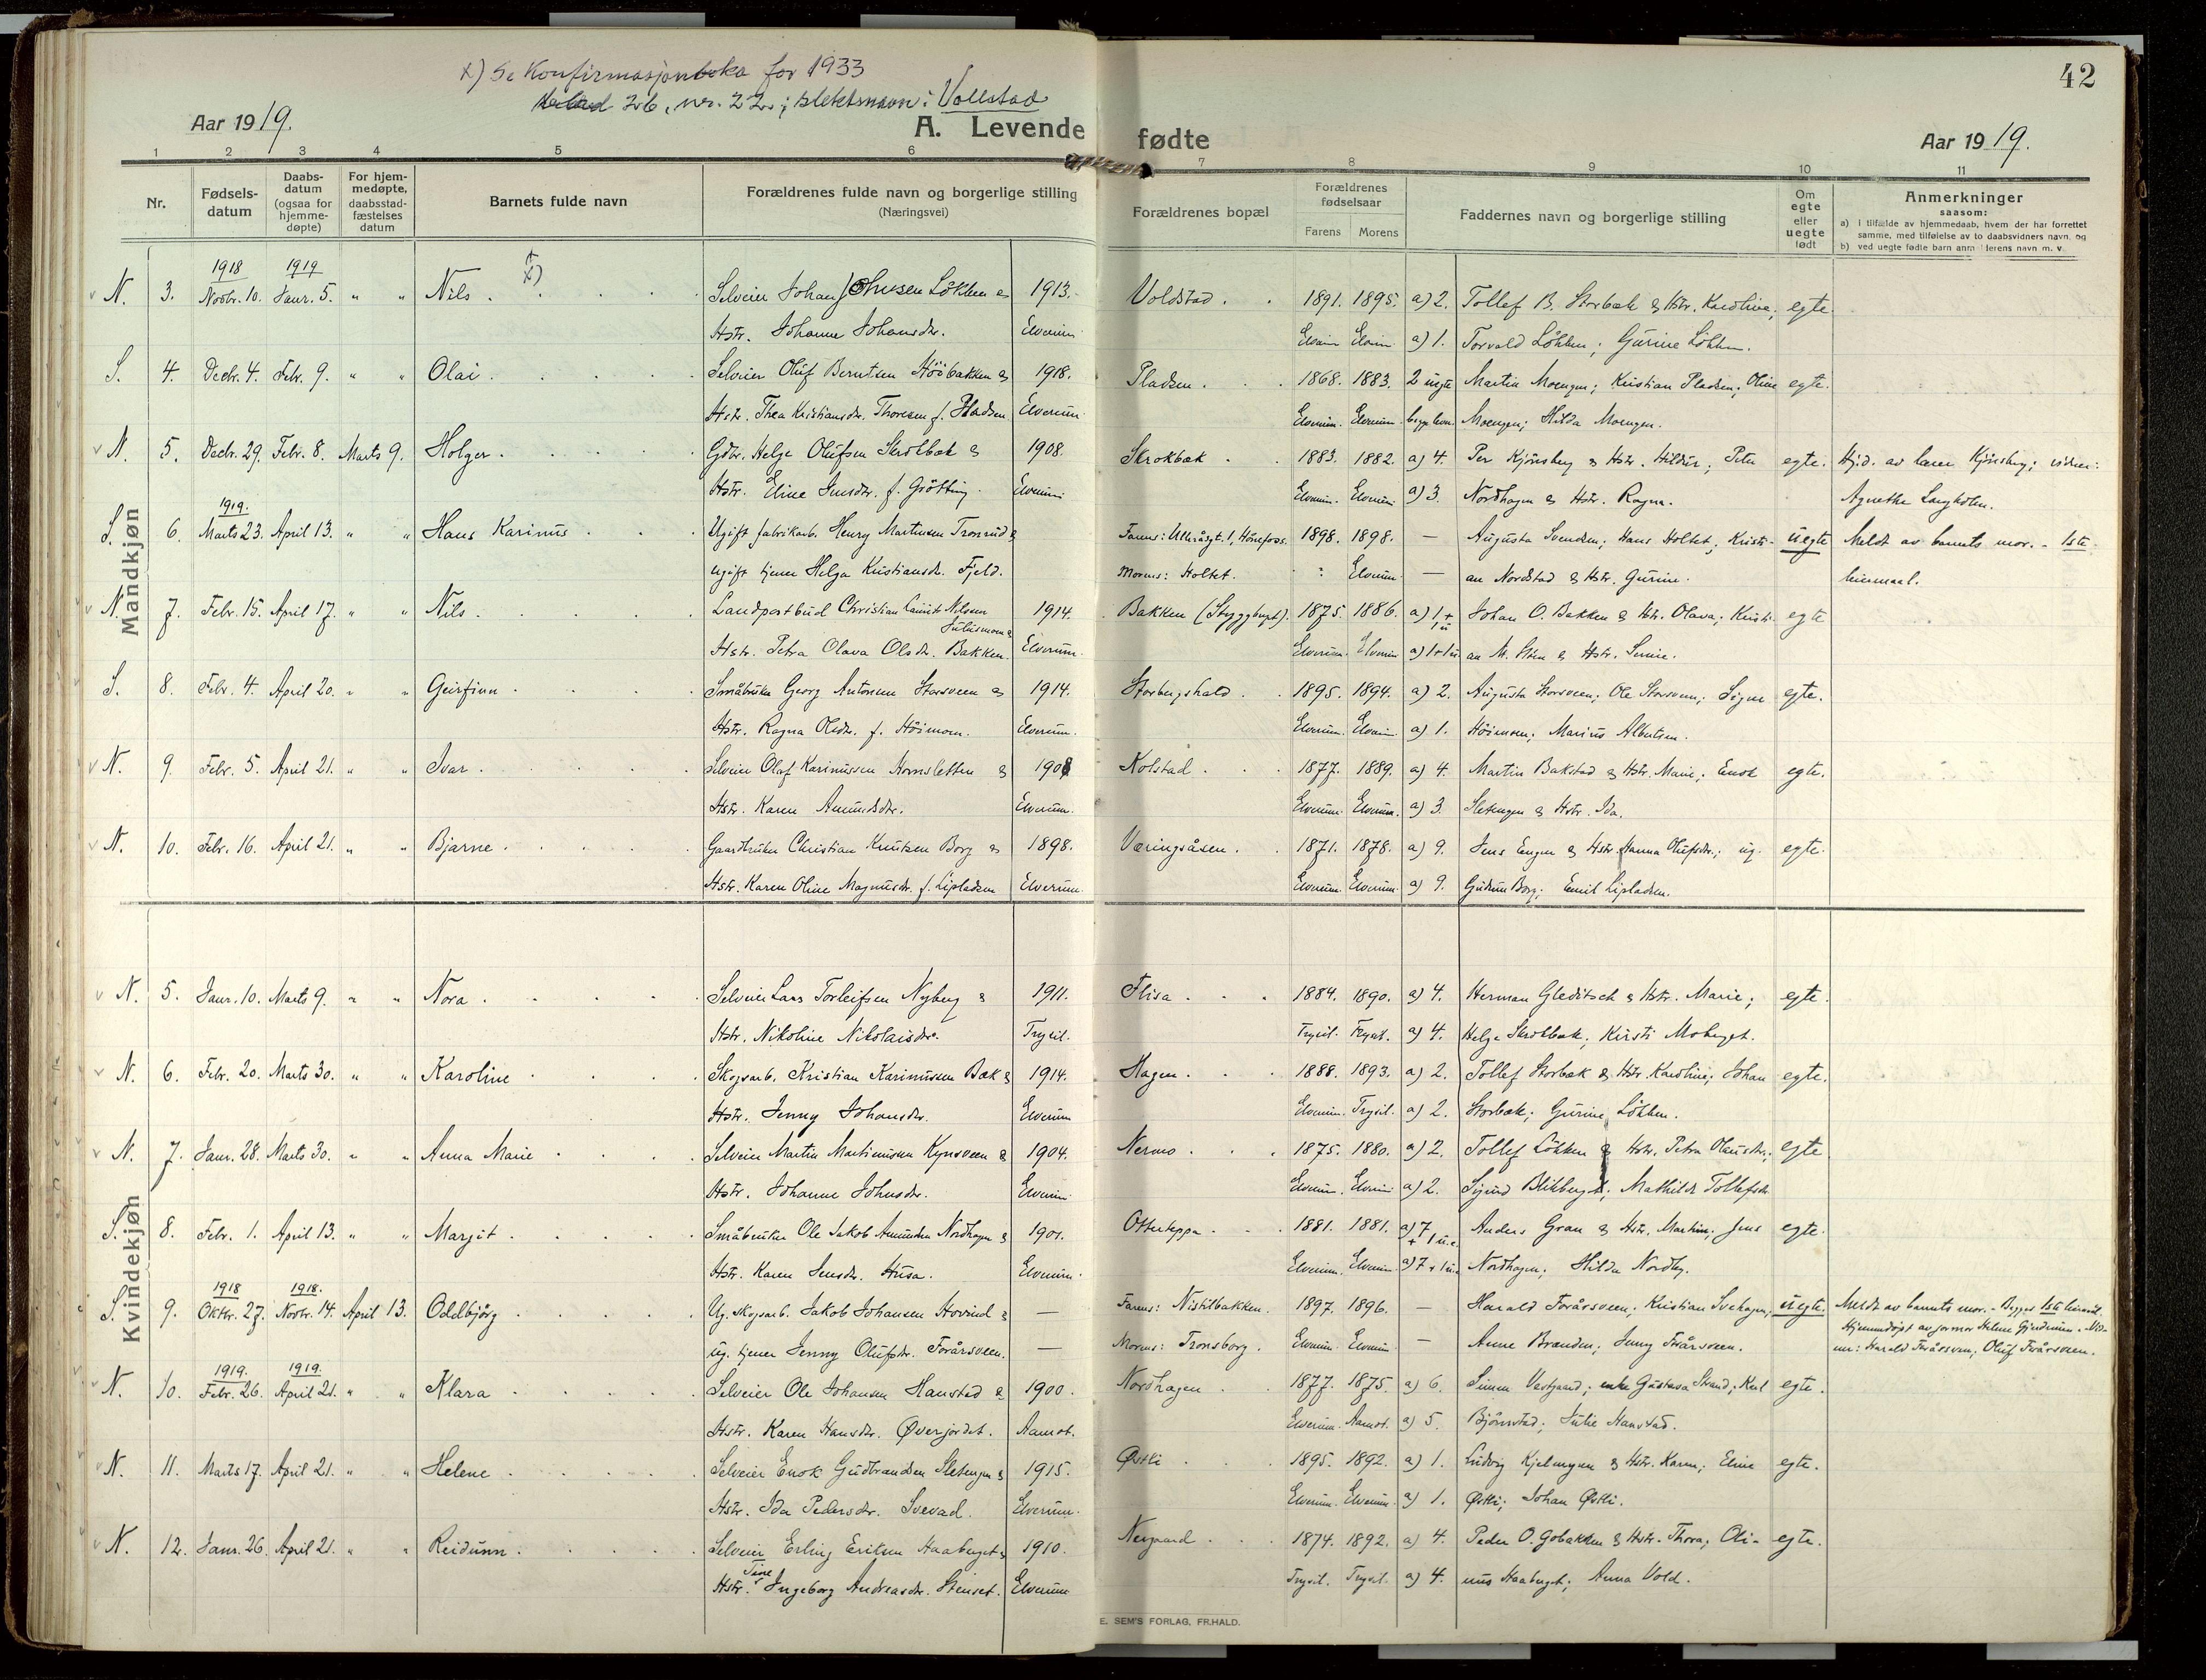 x) Se Konfirmasjonboka for 1933
226, nr. 22; slektsnavn: Vollstad
42
Aar 1919.
A. Levende fødte
Aar 1919.
1 2 3 4 5 6 7 8 9 10 11
Nr. Fødsels-datum Daabs-datum (ogsaa for hjemme-døpte) For hjem-medøpte, daabsstad-fæstelses datum Barnets fulde navn Forældrenes fulde navn og borgerlige stilling (Næringsvei) Forældrenes bopæl Forældrenes fødselsaar Farens Morens Faddernes navn og borgerlige stilling Om egte eller uegte født Anmerkninger saasom:
a) i tilfælde av hjemmedaab, hvem der har forrettet samme, med tilføielse av to daabsvidners navn, og
b) ved uegte fødte barn anm. navn m. v.
Mandkjøn
1918 1919
N. 3. Novbr. 10. Janr. 5. " " Nils. x) Selveier Johan Løkken & 1913. Voldstad. 1891. 1895. a) 2. Tollef B. Storbæk & Hstr. Karoline; egte
Hstr. Johanne Johansdr. Elverum Elverum Elverum a) 1. Torvald Løkken; Gurine Løkken.
S. 4. Decbr. 4. Febr. 9. " " Olai. Selveier Oluf Berntsen Höibakken & 1918. Pladsen. 1868. 1883. 2 uegte Martin Moengen; Kristian Pladsen; Oline egte.
Hstr. Thea Kristiansdr. Thoresen f. Pladsen. Elverum Elverum. Elverum Moengen; Hilda Moengen.
N. 5. Decbr. 29. Febr. 8. Marts 9. Holger. Gdbr. Helge Olufsen Skrökbæk & 1908. Skrokbæk. 1883. 1882. a) 4. Per Kjönsberg & Hstr. Hildur; Peter egte. Hj.d. av lærer Kjönsberg; vidner:
Hstr. Eline Jensdr. f. Grötting. Elverum Elverum. Elverum a) 3. Nordhagen & Hstr. Ragna. Agnethe Langholen.
1919.
S. 6. Marts 23. April 13. " " Hans Karinus. Ugift fabrikarb. Henry Martinsen Tronrud & Farens: 1, Hönefoss. 1898. 1898. — Augusta Svendsen; Hans Holtet; Kristi- uegte Meldt av barnets mor. - 1ste
ugift tjener Helga Kristiansdr. Fjeld. Morens: Holtet. Elverum — an Nordstad & Hstr. Gurine. leiermaal.
N. 7. Febr. 15. April 17. " " Nils. Landpostbud Christian Nilsen 1914. Bakken (Styggberget). 1875. 1886. a) 1 + u Johan O. Bakken & Hstr. Olava; Kristi- egte
Julusmoen &
Hstr. Petra Olava Olsdr. Bakken. Elverum. Elverum. Elverum a) 1+1u. an M. & Hstr.
S. 8. Febr. 4. April 20. " " Geirfinn. Småbruker Georg Antonsen Storsveen & 1914. Storbergshald. 1895. 1894. a) 2. Augusta Storsveen; Ole Storsveen; Signe egte.
Hstr. Ragna Olsdr. f. Höimoen. Elverum. Elverum. Elverum a) 1. Höimoen; Marius Albertsen.
N. 9. Febr. 5. April 21. " " Ivar. Selveier Olaf Karinussen Hornsletten & 1908 Kolstad. 1877. 1889. a) 4. Martin Bakstad & Hstr. Marie; Enok egte.
Hstr. Karen Amundsdr. Elverum. Elverum. Elverum. a) 3. Sletengen & Hstr. Ida.
N. 10. Febr. 16. April 21. " " Bjarne. Gaardbruker Christian Knutsen Borg & 1898. Væringsåsen. 1871. 1878. a) 9. Jens Engen & Hstr. Hanna Olufsdr.; ug. egte.
Hstr. Karen Oline Magnusdr. f. Lipladsen Elverum. Elverum. Elverum. a) 9. Gudrun Borg; Emil Lipladsen.
Kvindekjøn
N. 5. Janr. 10. Marts 9. " " Nora. Selveier Lars Torleifsen Nyberg & 1911. Flisa. 1884. 1890. a) 4. Herman Gleditsch & Hstr. Marie; egte.
Hstr. Nikoline Nikolaisdr. Trysil. Trysil. Trysil. a) 4. Helge Skrökbæk; Kirsti Moberget.
N. 6. Febr. 20. Marts 30. " " Karoline Skogsarb. Kristian Karinussen Bæk & 1914. Hagen. 1888. 1893. a) 2. Tollef Storbæk & Hstr. Karoline; Johan egte.
Hstr. Jenny Johansdr. Elverum Elverum. Trysil. a) 2. Storbæk; Gurine Løkken.
N. 7. Janr. 28. Marts 30. " " Anna Marie Selveier Martin Martinusen Kynsveen & 1904. Nermo. 1875. 1880. a) 2. Tollef Løkken & Hstr. Petra Olausdr.; egte
Hstr. Johanne Johnsdr. Elverum. Elverum. Elverum a) 2. Sigurd Blikberget; Mathilde Tollefsdr.
S. 8. Febr. 1. April 13. " " Margit. Småbruker Ole Jakob Amundsen Nordhagen & 1901. Otterteppa. 1881. 1881. a) 7 + 1 u.e. Anders Gran & Hstr. Martine; Jens egte.
Hstr. Karen Jensdr. Husa. Elverum. Elverum. Elverum. a) 7 + 1 u. Nordhagen; Hilda Nordby.
1918 1918.
S. 9. Oktbr. 27. Novbr. 14. April 13. Oddbjörg. Ug. skogsarb. Jakob Johansen Hovrud & — Farens: Nistilbakken. 1897. 1896. — Harald Forårsveen; Kristian Svehagen; uegte. Meldt av barnets mor. - Begges 1ste leiermål.
Hjemmedøpt av jormor Helene Gjerdrum. Vid-
ug. tjener Jenny Olufsdr. Forårsveen. — Morens: Tronsborg. Elverum. Elverum — Anne Brænden; Jenny Forårsveen. ner: Harald Forårsveen; Oluf Forårsveen.
1919. 1919.
N. 10. Febr. 26. April 21. " " Klara Selveier Ole Johansen Hanstad & 1900. Nordhagen 1877. 1875. a) 6. Simen Vestgaard; enke Gustava Strand; Karl egte.
Hstr. Karen Hansdr. Øverjordet. Aamot. Elverum. Aamot. a) 5. Björnstad; Julie Hanstad.
N. 11. Marts 17. April 21. " " Helene Selveier Enok Gudbrandsen Sletengen & 1915. Østli 1895. 1892. a) 1. Ludvig Kjelengen & Hstr. Karen; Eline egte.
Hstr. Ida Pedersdr. Svevad. Elverum. Elverum. Elverum. a) 1. Østli; Johan Østli.
N. 12. Janr. 26. April 21. " " Reidunn. Selveier Erling Eriksen Haaberget & 1910. Nergaard 1874. 1892. a) 4. Peder O. Gobakken & Hstr. Thora; Oli- egte.
Tine
Hstr. Ingeborg Andreasdr. Stenset. Elverum Trysil. Trysil. a) 4. nus Haaberget; Anna Vold.
E. SEM'S FORLAG, FR.HALD.